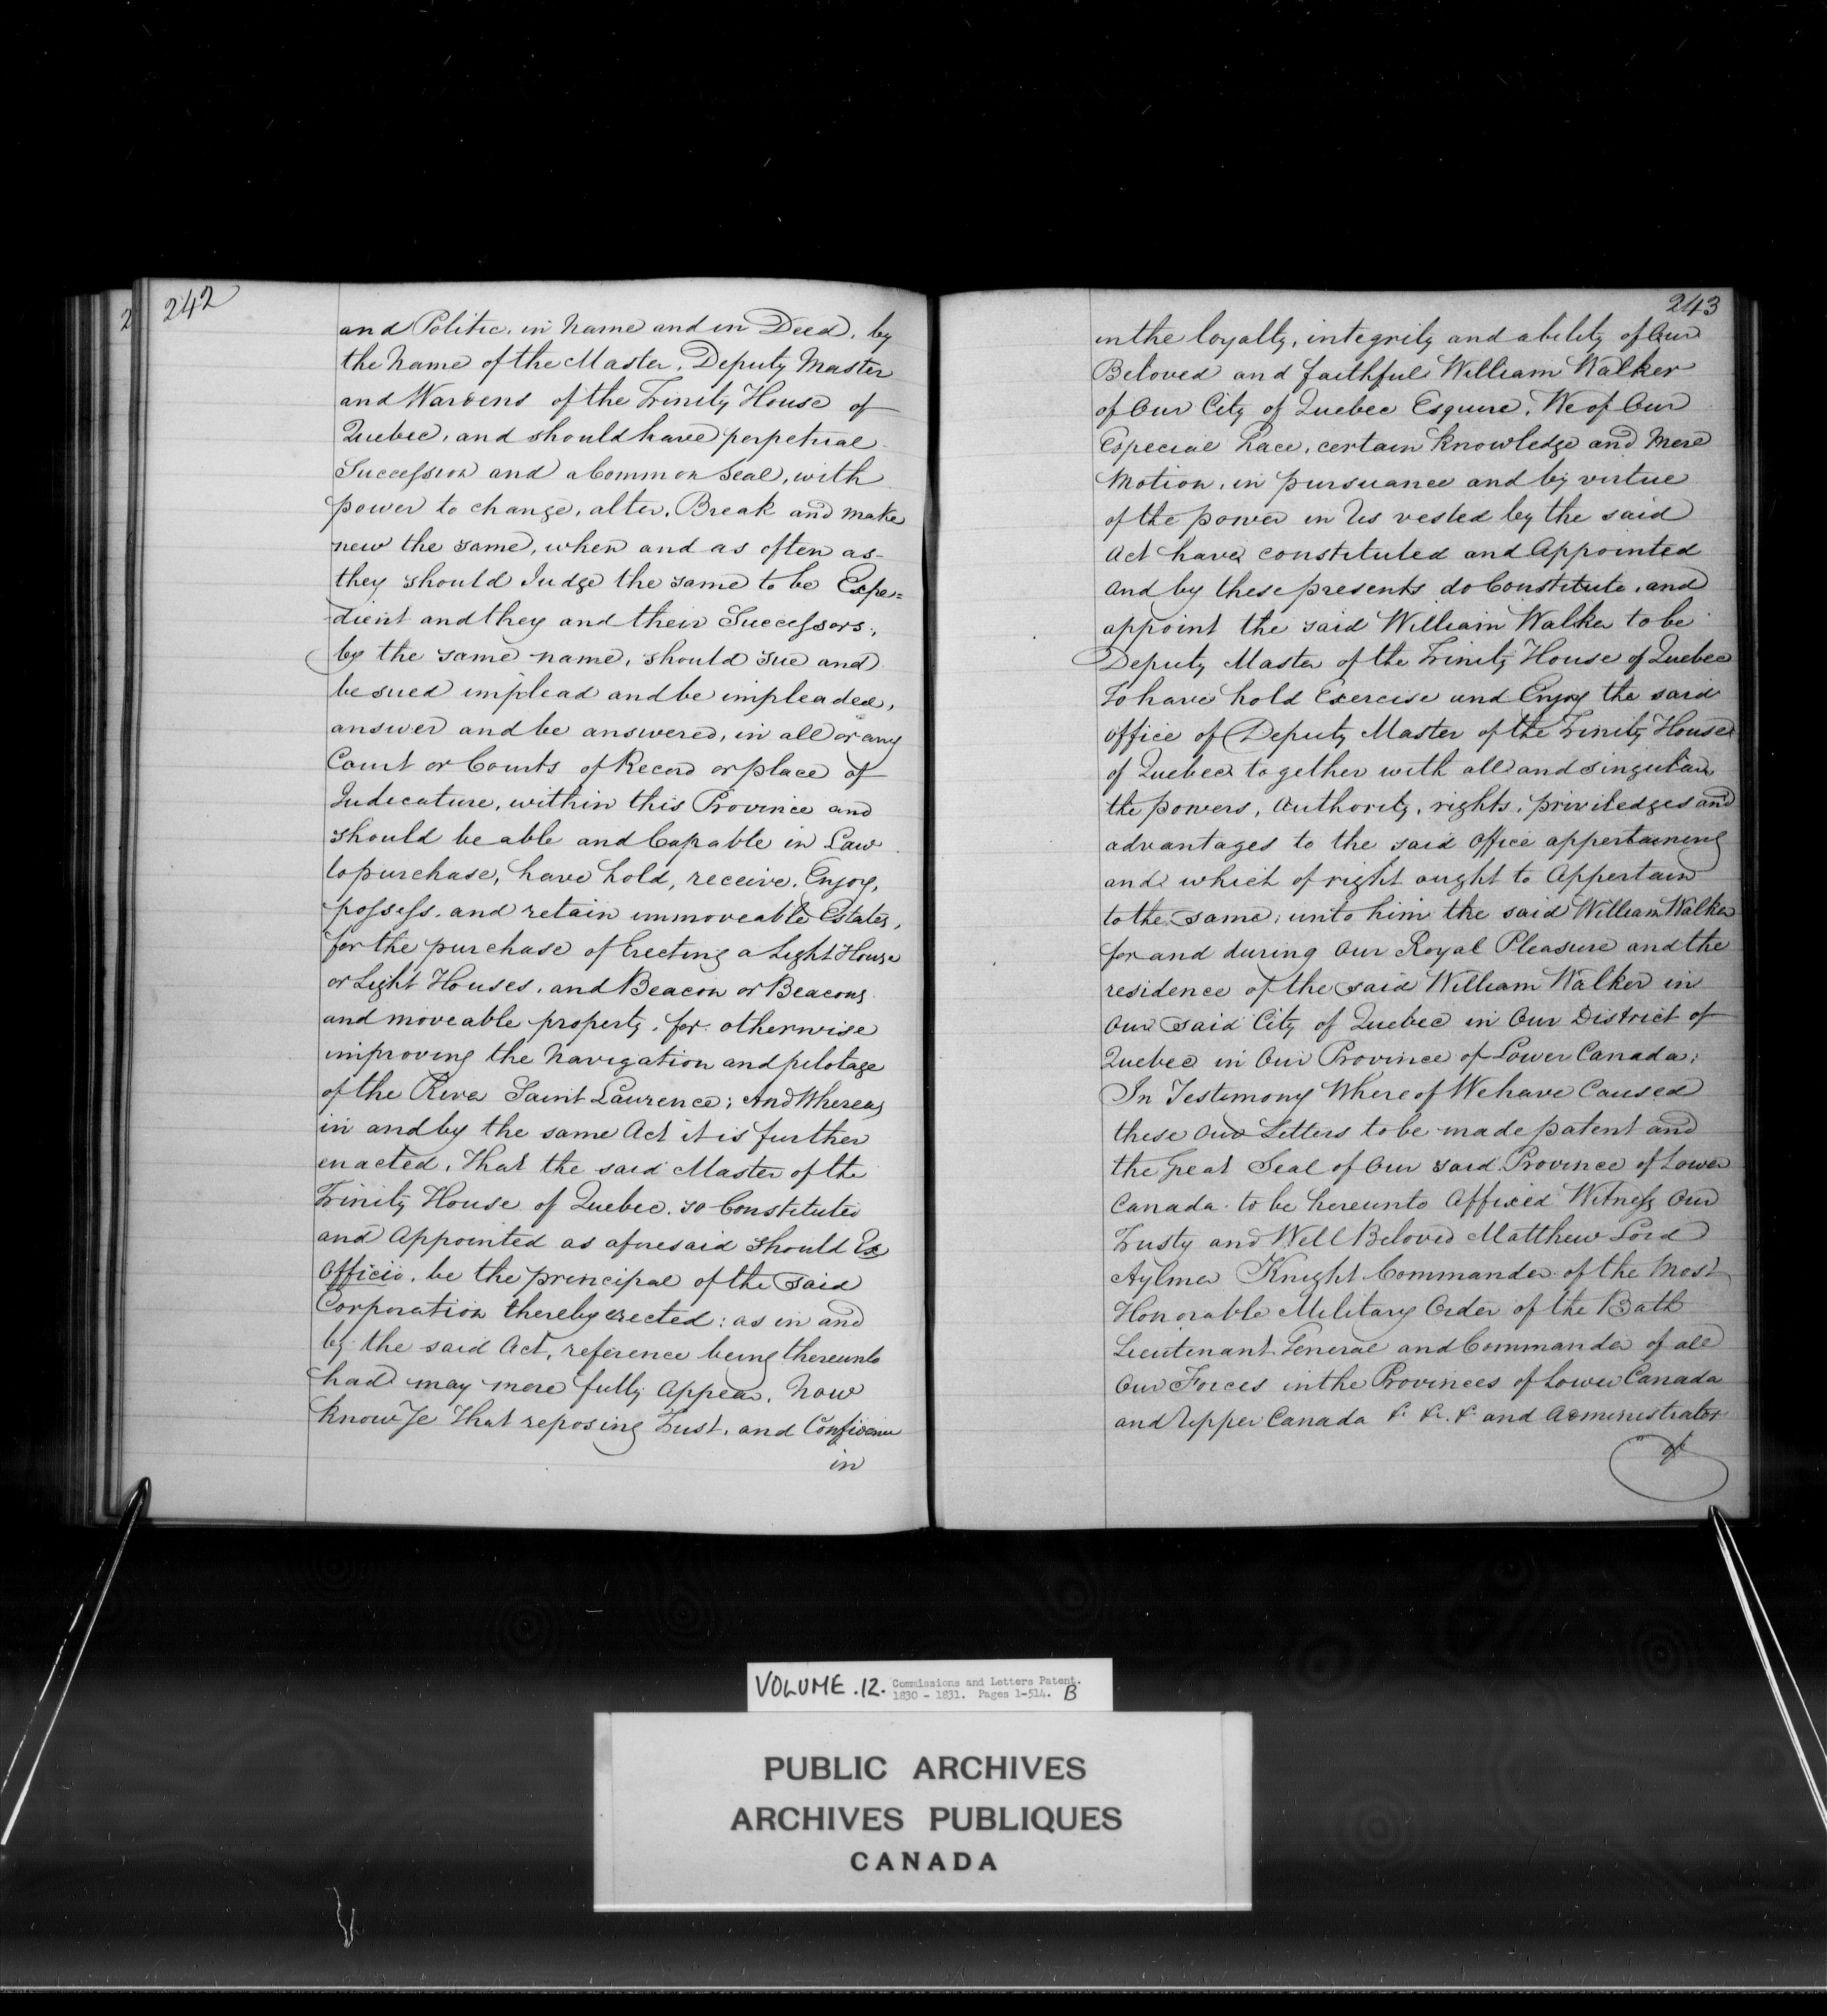 242
and Politic, in Name and in Deed, by
the Name of the Master, Deputy Master
and Wardens of the Trinity House of
Quebec, and should have perpetual
Succession and a Common Seal, with
power to change, alter, Break and make
new the same, when and as often as
they should Judge the same to be Expe=
dient and they and their Successors,
by the same name, should sue and
be sued implead and be impleaded,
answer and be answered, in all or any
Court or Courts of Record or place of
Judicature, within this Province and
should be able and Capable in Law
to purchase, have hold, receive, Enjoy,
possess, and retain immoveable Estates,
for the purchase of Erecting a Light House
or Light Houses, and Beacon or Beacons
and moveable property, for otherwise
improving the Navigation and pilotage
of the River Saint Laurence; And Whereas
in and by the same Act it is further
enacted, That the said Master of the
Trinity House of Quebec, so Constituted
and Appointed as aforesaid should Ex
Officio, be the principal of the said
Corporation thereby erected: as in and
by the said Act, reference being thereunto
had may more fully Appear, Now
Know Ye That reposing Trust, and Confidence
in
243
in the loyalty, integrity and ability of Our
Beloved and faithful William Walker
of Our City of Quebec Esquire, We of Our
Especial Grace, certain Knowledge and Mere
Motion, in pursuance and by virtue
of the power in Us vested by the said
Act have constituted and Appointed
and by these presents do Constitute, and
appoint the said William Walker to be
Deputy Master of the Trinity House of Quebec
To have hold Exercise and Enjoy the said
office of Deputy Master of the Trinity House
of Quebec together with all and singular
the powers, authority, rights, priviledges and
advantages to the said Office appertaining
and which of right ought to Appertain
to the same; unto him the said William Walker
for and during Our Royal Pleasure and the
residence of the said William Walker in
Our said City of Quebec in Our District of
Quebec in Our Province of Lower Canada;
In Testimony Whereof We have Caused
these Our Letters to be made patent and
the Great Seal of Our said Province of Lower
Canada to be hereunto Affixed Witness Our
Trusty and Well Beloved Matthew Lord
Aylmer Knight Commander of the Most
Honorable Military Order of the Bath
Lieutenant General and Commander of all
Our Forces in the Provinces of Lower Canada
and Upper Canada &. &c. &. and Administrator
of
VOLUME .12. Commissions and Letters Patent.
1830 - 1831. Pages 1-514. B
PUBLIC ARCHIVES
ARCHIVES PUBLIQUES
CANADA